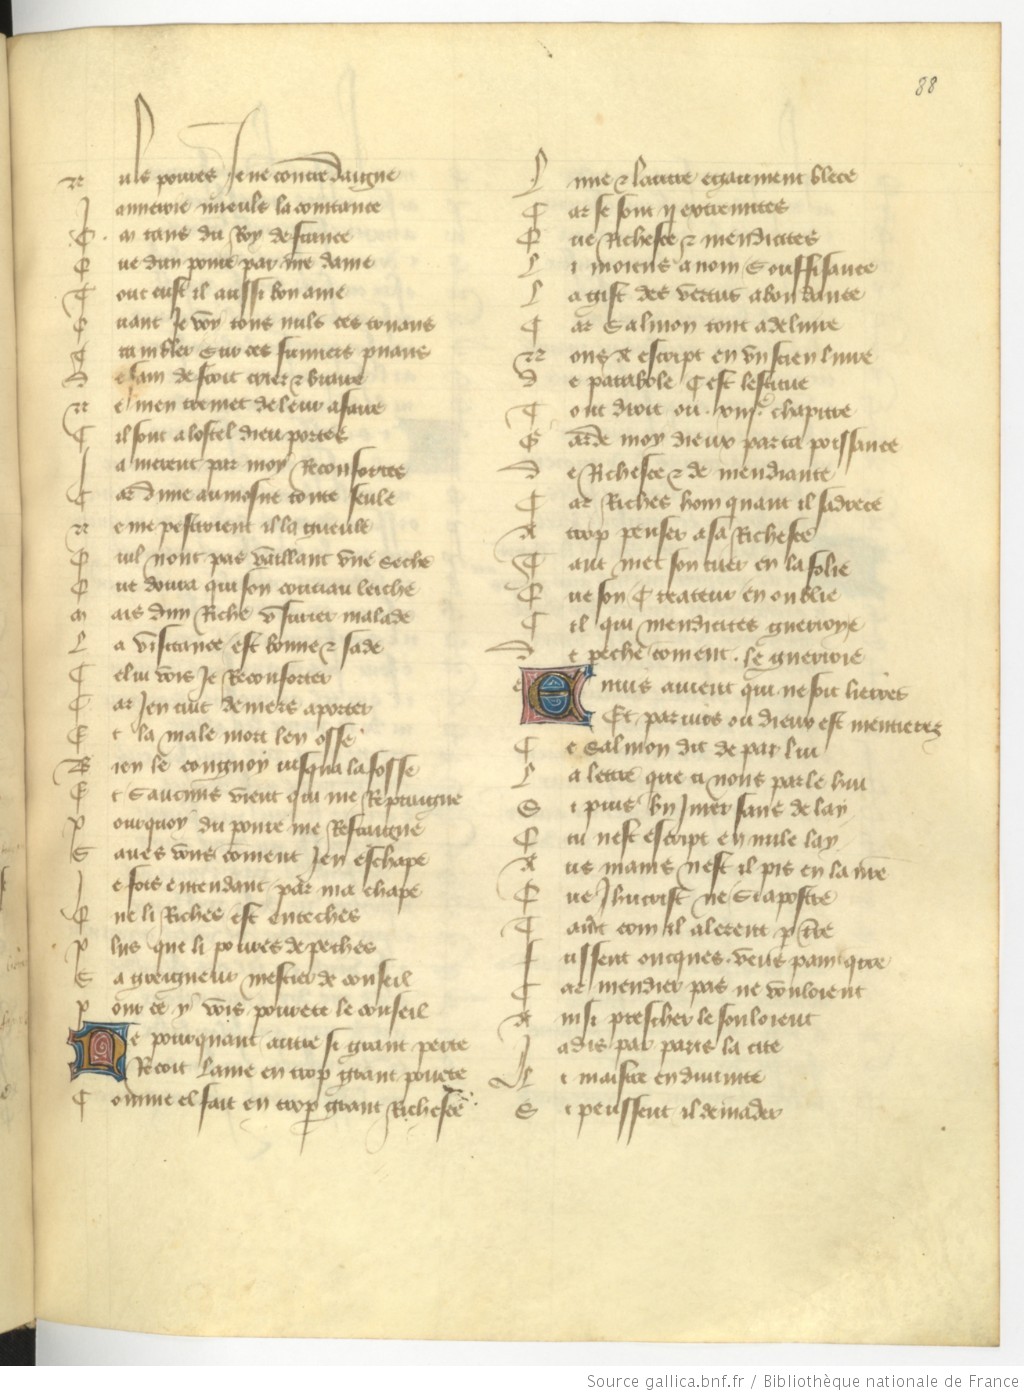 88
Nuls poures Je ne contredaigne
Jammeroie mieuls la comtance
C. m tans du Roy de france
Que dun poure par nre dame
Tout eust il aussi bon ame
Quant Je voy tous nuls ces truans
Trambler sur ces fumiers puans
De fain de froit crier & braire
Ne men tremet de leur afaire
Cil sont a lostel dieu portes
Ja nierent par moy Reconfortes
Car dune aumosne toute seule
Ne me pestroient il la gueule
Quil nont pas vaillant vne seche
Que donra qui son coutiau leiche
Mais dun Riche vsurier malade
La visitance est bonne & sade
Celui vois Je Reconforter
Car Jen cuit deniers aporter
Et la male mort len osse
Bien le congnoy iusqua la fosse
Et Saucuns vient qui me Repraigne
Pourquoy du poure me Restraigne
Saues vous coment Jen eschape
Je fois entendant par ma chape
Que li Riches est enteches
Plus que li poures de peches
Sa greigneur mestier de conseil
Pour ce y vois pour ce le conseil
Ne pourquant autre si grant perte
Recoit lame en trop grant pourete
Comme el fait en trop grant Richesse
Lune & lautre egaument blece
Car se sont ij extremites
Que Richesce & mendicites
Li moiens a nom Souffisance
La gist des vertus abondance
Car Salmon tout a deliure
Nous A escript en vn sien liure
De parabole C est le titre
Tout droit ou . xxx.e chapitre
Garde moy dieux par ta poissance
De Richesce & de mendiance
Car Riches hom quant il sadrece
A trop penser a sa Richesce
Tant met son cuer en la folie
Que son Createur en oublie
Cil qui mendicites guerroye
De peche coment le guerroie
Enuis auient qui ne soit lierres
Et pariurs ou dieux est mentierres
Ce Salmon dit de par lui
La lettre que ci nous parle hui
Si puis bn Jurer sans delay
Quil nest escript en nule lay
Au mains nest il pis en la nre
Que Jhucrist ne Si apostre
Tant com il alerent p tre
Fussent oncques veus pain querre
Car mendier pas ne vouloient
Ainsi preschier le souloient
Jadis par paris la cite
Li maistre en diuinite
Si peussent il demander
Source gallica.bnf.fr / Bibliothèque nationale de France